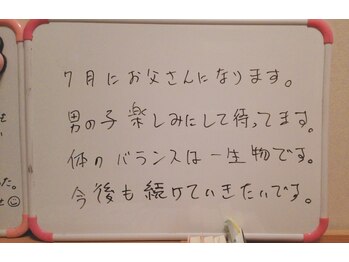 7月にお父さんになります。
男の子楽しみにして待ってます。
体のバランスは一生物です。
今後も続けていきたいです。